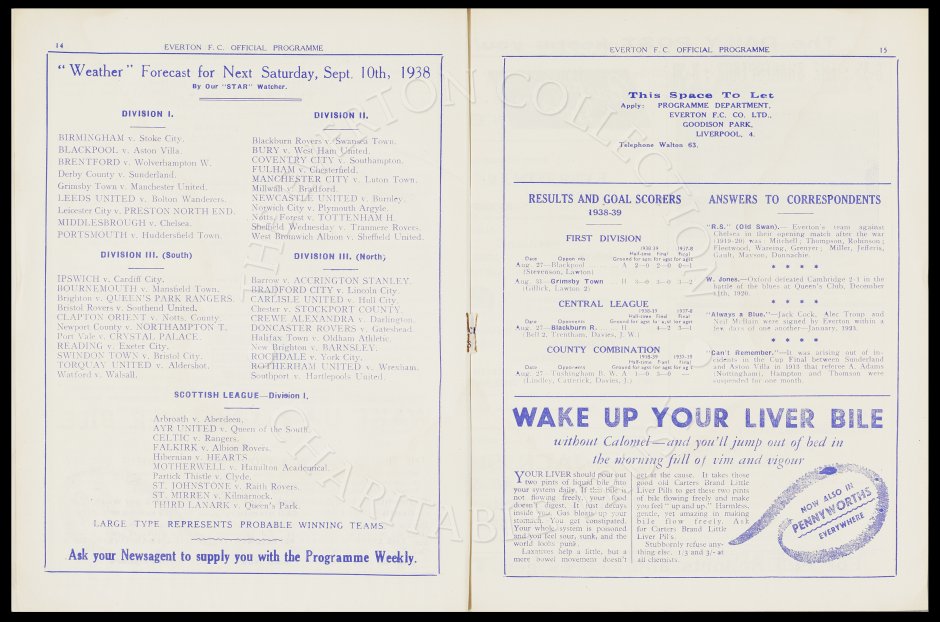 14
EVERTON F.C. OFFICIAL PROGRAMME
"Weather" Forecast for Next Saturday, Sept. 10th, 1938
By Our "STAR" Watcher.
DIVISION I.
BIRMINGHAM v. Stoke City.
BLACKPOOL v. Aston Villa.
BRENTFORD v. Wolverhampton W.
Derby County v. Sunderland.
Grimsby Town v. Manchester United.
LEEDS UNITED v. Bolton Wanderers.
Leicester City v. PRESTON NORTH END.
MIDDLESBROUGH v. Chelsea.
PORTSMOUTH v. Huddersfield Town.
DIVISION II.
Blackburn Rovers v. Swansea Town.
BURY v. West Ham United.
COVENTRY CITY v. Southampton.
FULHAM v. Chesterfield.
MANCHESTER CITY v. Luton Town.
Millwall v. Bradford.
NEWCASTLE UNITED v. Burnley.
Norwich City v. Plymouth Argyle.
Notts. Forest v. TOTTENHAM H.
Sheffield Wednesday v. Tranmere Rovers.
West Bromwich Albion v. Sheffield United.
DIVISION III. (South)
IPSWICH v. Cardiff City.
BOURNEMOUTH v. Mansfield Town.
Brighton v. QUEEN'S PARK RANGERS.
Bristol Rovers v. Southend United.
CLAPTON ORIENT v. Notts. County
Newport County v. NORTHAMPTON T.
Port Vale v. CRYSTAL PALACE.
READING v. Exeter City.
SWINDON TOWN v. Bristol City.
TORQUAY UNITED v. Aldershot.
Watford v. Walsall.
DIVISION III. (North)
Barrow v. ACCRINGTON STANLEY.
BRADFORD CITY v. Lincoln City.
CARLISLE UNITED v. Hull City.
Chester v. STOCKPORT COUNTY.
CREWE ALEXANDRA v. Darlington.
DONCASTER ROVERS v. Gateshead.
Halifax Town v. Oldham Athletic.
New Brighton v. BARNSLEY.
ROCHDALE v. York City.
ROTHERHAM UNITED v. Wrexham.
Southport v. Hartlepools United.
SCOTTISH LEAGUE—Division I.
Arbroath v. Aberdeen.
AYR UNITED v. Queen of the South.
CELTIC v. Rangers.
FALKIRK v. Albion Rovers.
Hibernian v. HEARTS
MOTHERWELL v. Hamilton Academical.
Partick Thistle v. Clyde.
ST. JOHNSTONE v. Raith Rovers.
ST. MIRREN v. Kilmarnock.
THIRD LANARK v. Queen's Park
LARGE TYPE REPRESENTS PROBABLE WINNING TEAMS
Ask your Newsagent to supply you with the Programme Weekly.
EVERTON F.C. OFFICIAL PROGRAMME
15
This Space To Let
Apply: PROGRAMME DEPARTMENT,
EVERTON F.C. CO. LTD.,
GOODISON PARK,
LIVERPOOL, 4.
Telephone Walton 63.
RESULTS AND GOAL SCORERS
1938-39
FIRST DIVISION
1938-39 1937-8
Half-time Final Final
Date Opponents Ground for agst for agst for agst
Aug. 27—Blackpool A 2—0 2—0 0—1
(Stevenson, Lawton)
Aug. 31—Grimsby Town H 3—0 3—0 3—2
(Gillick, Lawton 2)
CENTRAL LEAGUE
1938-39 1937-8
Half-time Final Final
Date Opponents Ground for agst for agst for agst
Aug. 27—Blackburn R. H 4—2 3—1
(Bell 2, Trentham, Davies, J. W.)
COUNTY COMBINATION
1938-39 1937-38
Half-time Final Final
Date Opponents Ground for agst for agst for agst
Aug. 27—Tushingham B. W. A 1—0 3—0 —
(Lindley, Catterick, Davies, J.)
ANSWERS TO CORRESPONDENTS
"R.S." (Old Swan).—Everton's team against
Chelsea in their opening match after the war
(1919-20) was Mitchell; Thompson, Robinson;
Fleetwood, Wareing, Grenyer; Miller, Jefferis,
Gault, Mayson, Donnachie.
* * * *
W. Jones.—Oxford defeated Cambridge 2-1 in the
battle of the blues at Queen's Club, December
11th, 1920.
* * * *
"Always a Blue."—Jack Cock, Alec Troup and
Neil McBain were signed by Everton within a
few days of one another—January, 1923.
* * * *
"Can't Remember."—It was arising out of in-
cidents in the Cup Final between Sunderland
and Aston Villa in 1913 that referee A. Adams
(Nottingham), Hampton and Thomson were
suspended for one month.
WAKE UP YOUR LIVER BILE
without Calomel—and you'll jump out of bed in
the morning full of vim and vigour
YOUR LIVER should pour out
two pints of liquid bile into
your system daily. If this bile is
not flowing freely, your food
doesn't digest. It just decays
inside you. Gas bloats up your
stomach. You get constipated.
Your whole system is poisoned
and you feel sour, sunk, and the
world looks punk.
Laxatives help a little, but a
mere bowel movement doesn't
get at the cause. It takes those
good old Carters Brand Little
Liver Pills to get these two pints
of bile flowing freely and make
you feel "up and up." Harmless,
gentle, yet amazing in making
bile flow freely. Ask
for Carters Brand Little
Liver Pills.
Stubbornly refuse any-
thing else. 1/3 and 3/- at
all chemists.
NOW ALSO IN
PENNYWORTHS
EVERYWHERE